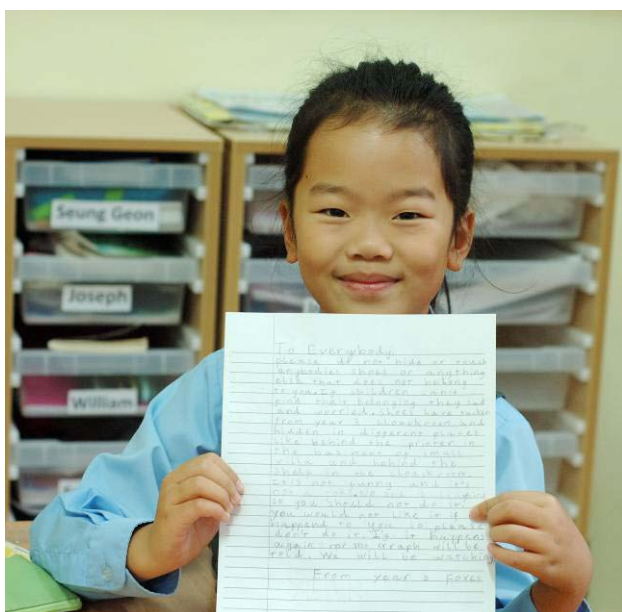 Seung Geon
Joseph
William
To Everybody,
please do not hide or touch
anybodies shoes or anything
else that does not belong
to you. If children
find their belonging they sad
and worried. Shoes have
from year 3 and
hidden in different places
like behind the printer in
the of small
villa and behind the
in the
It's not funny and it's
not
so you should not do it.
you would not like it if it
happend to you so please
don't do it. If it happens
again will be
told. We will be watching
From year 3 Foxes